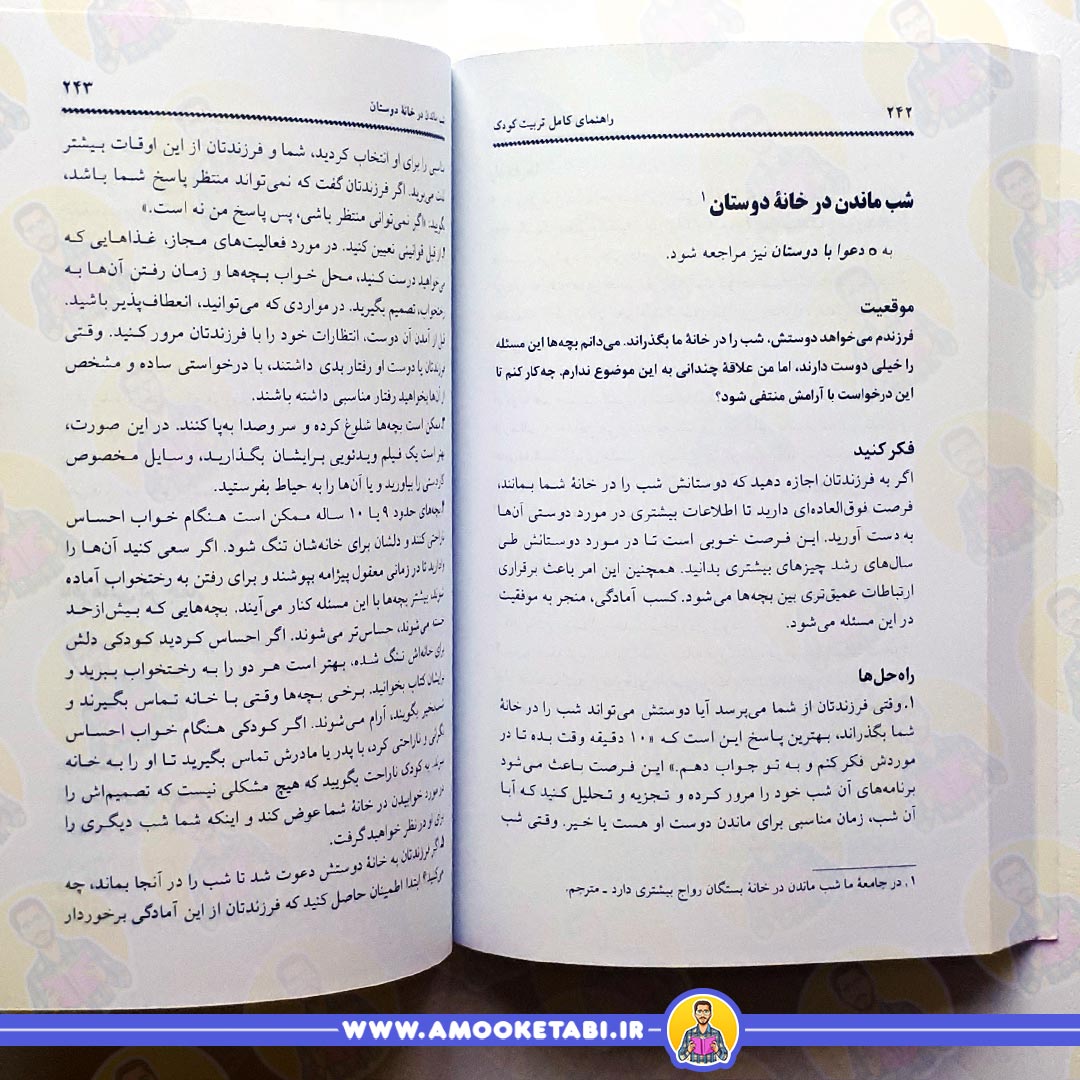 ۲۴۲
راهنمای کامل تربیت کودک
شب ماندن در خانهٔ دوستان۱
به ٥ دعوا با دوستان نیز مراجعه شود.
موقعیت
فرزندم می‌خواهد دوستش، شب را در خانهٔ ما بگذراند. می‌دانم بچه‌ها این مسئله
را خیلی دوست دارند، اما من علاقهٔ چندانی به این موضوع ندارم. چه‌کار کنم تا
این درخواست با آرامش منتفی شود؟
فکر کنید
اگر به فرزندتان اجازه دهید که دوستانش شب را در خانهٔ شما بمانند،
فرصت فوق‌العاده‌ای دارید تا اطلاعات بیشتری در مورد دوستی آن‌ها
به دست آورید. این فرصت خوبی است تا در مورد دوستانش طی
سال‌های رشد چیزهای بیشتری بدانید. همچنین این امر باعث برقراری
ارتباطات عمیق‌تری بین بچه‌ها می‌شود. کسب آمادگی، منجر به موفقیت
در این مسئله می‌شود.
راه‌حل‌ها
۱. وقتی فرزندتان از شما می‌پرسد آیا دوستش می‌تواند شب را در خانهٔ
شما بگذراند، بهترین پاسخ این است که «۱۰ دقیقه وقت بده تا در
موردش فکر کنم و به تو جواب دهم.» این فرصت باعث می‌شود
برنامه‌های آن شب خود را مرور کرده و تجزیه و تحلیل کنید که آیا
آن شب، زمان مناسبی برای ماندن دوست او هست یا خیر. وقتی شب
۱. در جامعهٔ ما شب ماندن در خانهٔ بستگان رواج بیشتری دارد ـ مترجم.
شب ماندن در خانهٔ دوستان
۲۴۳
را برای او انتخاب کردید، شما و فرزندتان از این اوقات بیشتر
می‌برید. اگر فرزندتان گفت که نمی‌تواند منتظر پاسخ شما باشد،
بگوید: «اگر نمی‌توانی منتظر باشی، پس پاسخ من نه است.»
از قبل قوانینی تعیین کنید. در مورد فعالیت‌های مجاز، غذاهایی که
می‌خواهید درست کنید، محل خواب بچه‌ها و زمان رفتن آن‌ها به
رختخواب، تصمیم بگیرید. در مواردی که می‌توانید، انعطاف‌پذیر باشید.
قبل از آمدن آن دوست، انتظارات خود را با فرزندتان مرور کنید. وقتی
فرزندتان یا دوست او رفتار بدی داشتند، با درخواستی ساده و مشخص
از آن‌ها بخواهید رفتار مناسبی داشته باشند.
ممکن است بچه‌ها شلوغ کرده و سر و صدا به‌پا کنند. در این صورت،
بهتر است یک فیلم ویدئویی برایشان بگذارید، وسایل مخصوص
کاردستی را بیاورید و یا آن‌ها را به حیاط بفرستید.
بچه‌های حدود ۹ یا ۱۰ ساله ممکن است هنگام خواب احساس
ناراحتی کنند و دلشان برای خانه‌شان تنگ شود. اگر سعی کنید آن‌ها را
وادارید تا در زمانی معقول پیژامه بپوشند و برای رفتن به رختخواب آماده
شوند، بیشتر بچه‌ها با این مسئله کنار می‌آیند. بچه‌هایی که بیش‌ازحد
خسته می‌شوند، حساس‌تر می‌شوند. اگر احساس کردید کودکی دلش
برای خانه‌اش تنگ شده، بهتر است هر دو را به رختخواب ببرید و
برایشان کتاب بخوانید. برخی بچه‌ها وقتی با خانه تماس بگیرند و
شب‌بخیر بگویند، آرام می‌شوند. اگر کودکی هنگام خواب احساس
نگرانی و ناراحتی کرد، با پدر یا مادرش تماس بگیرید تا او را به خانه
ببرند. به کودک ناراحت بگویید که هیچ مشکلی نیست که تصمیم‌اش را
در مورد خوابیدن در خانهٔ شما عوض کند و اینکه شما شب دیگری را
برای او در نظر خواهید گرفت.
اگر فرزندتان به خانهٔ دوستش دعوت شد تا شب را در آنجا بماند، چه
می‌کنید؟ ابتدا اطمینان حاصل کنید که فرزندتان از این آمادگی برخوردار
WWW.AMOOKETABI.IR